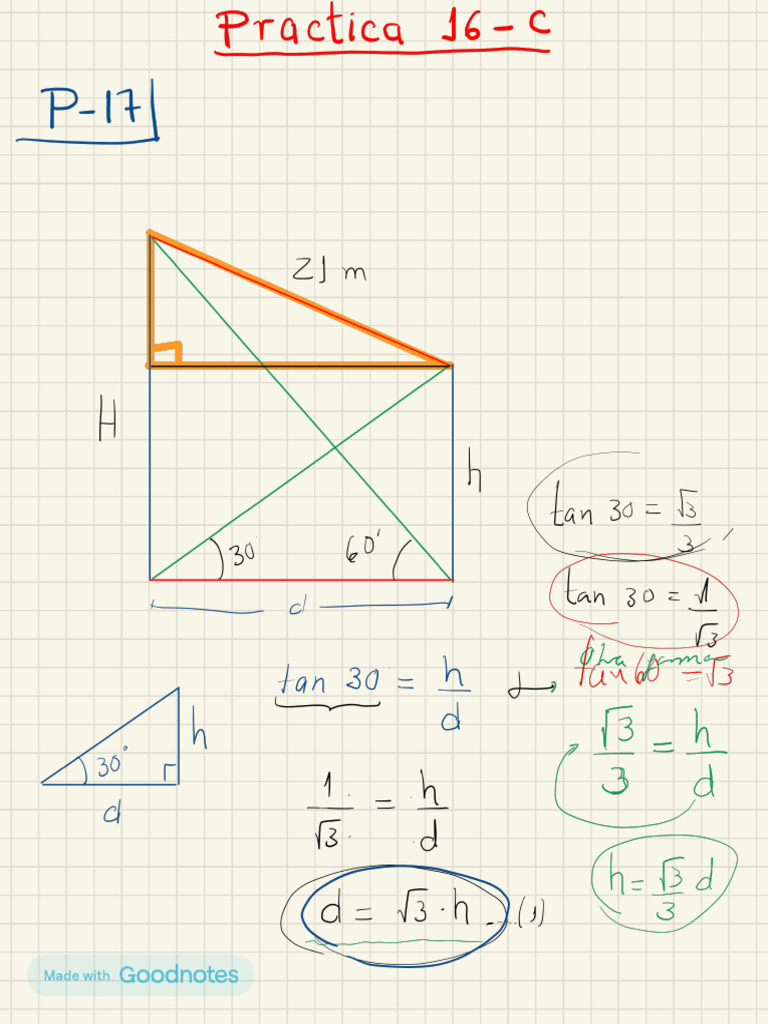 Practica 16-C
P-17
21 m
H
h
30
60°
d
tan 30 = √3/3
tan 30 = 1/√3
tan 60 = √3
tan 30 = h/d
√3/3 = h/d
h
30°
d
1/√3 = h/d
h = √3/3 d
d = √3 · h ... (1)
Made with Goodnotes